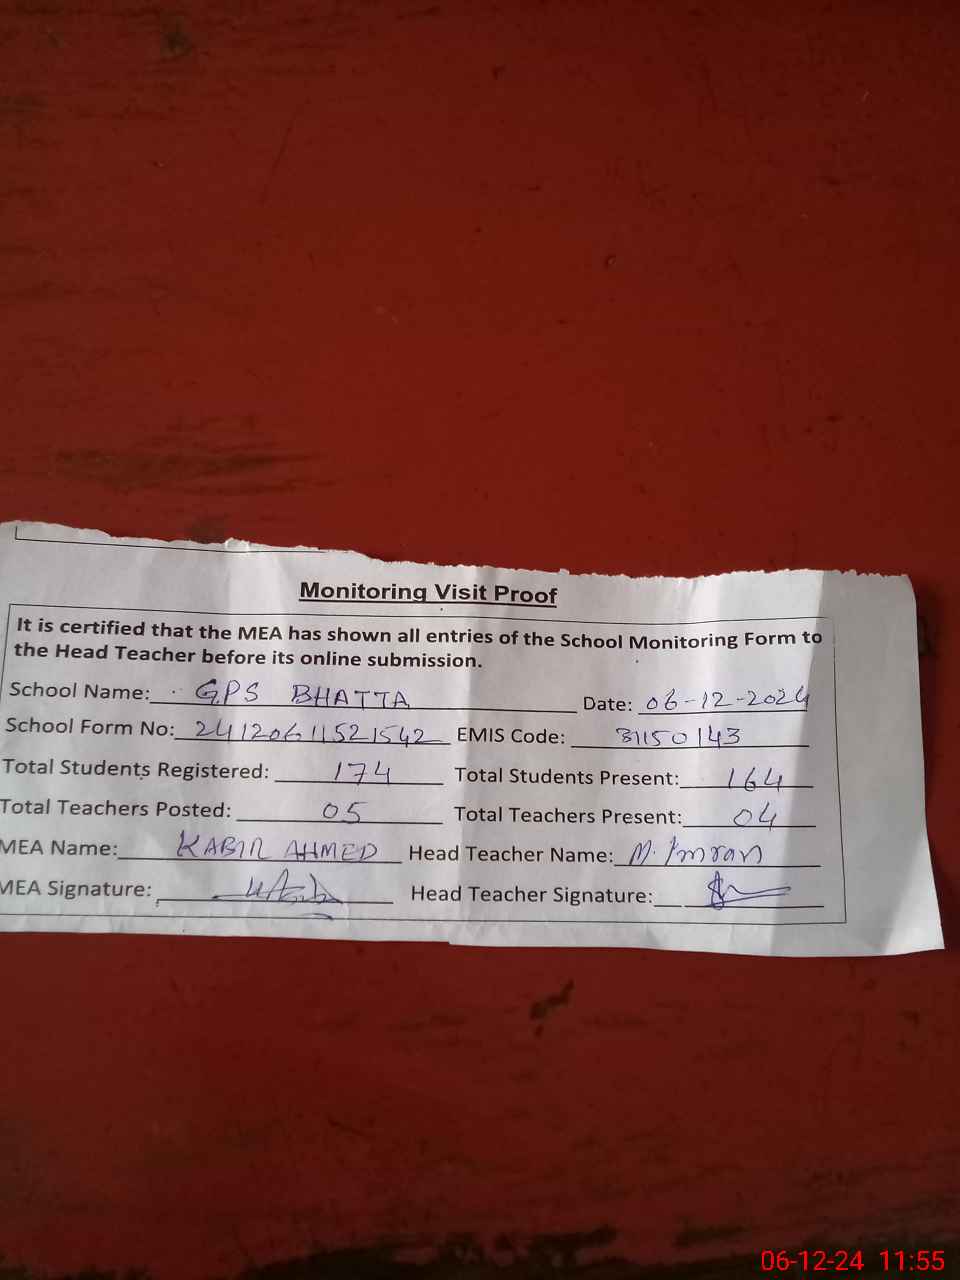 Monitoring Visit Proof
It is certified that the MEA has shown all entries of the School Monitoring Form to
the Head Teacher before its online submission.
School Name: GPS BHATTA Date: 06-12-2024
School Form No: 24120611521542 EMIS Code: 31150143
Total Students Registered: 174 Total Students Present: 164
Total Teachers Posted: 05 Total Teachers Present: 04
MEA Name: KABIR AHMED Head Teacher Name: M. Imran
MEA Signature: Head Teacher Signature:
06-12-24 11:55